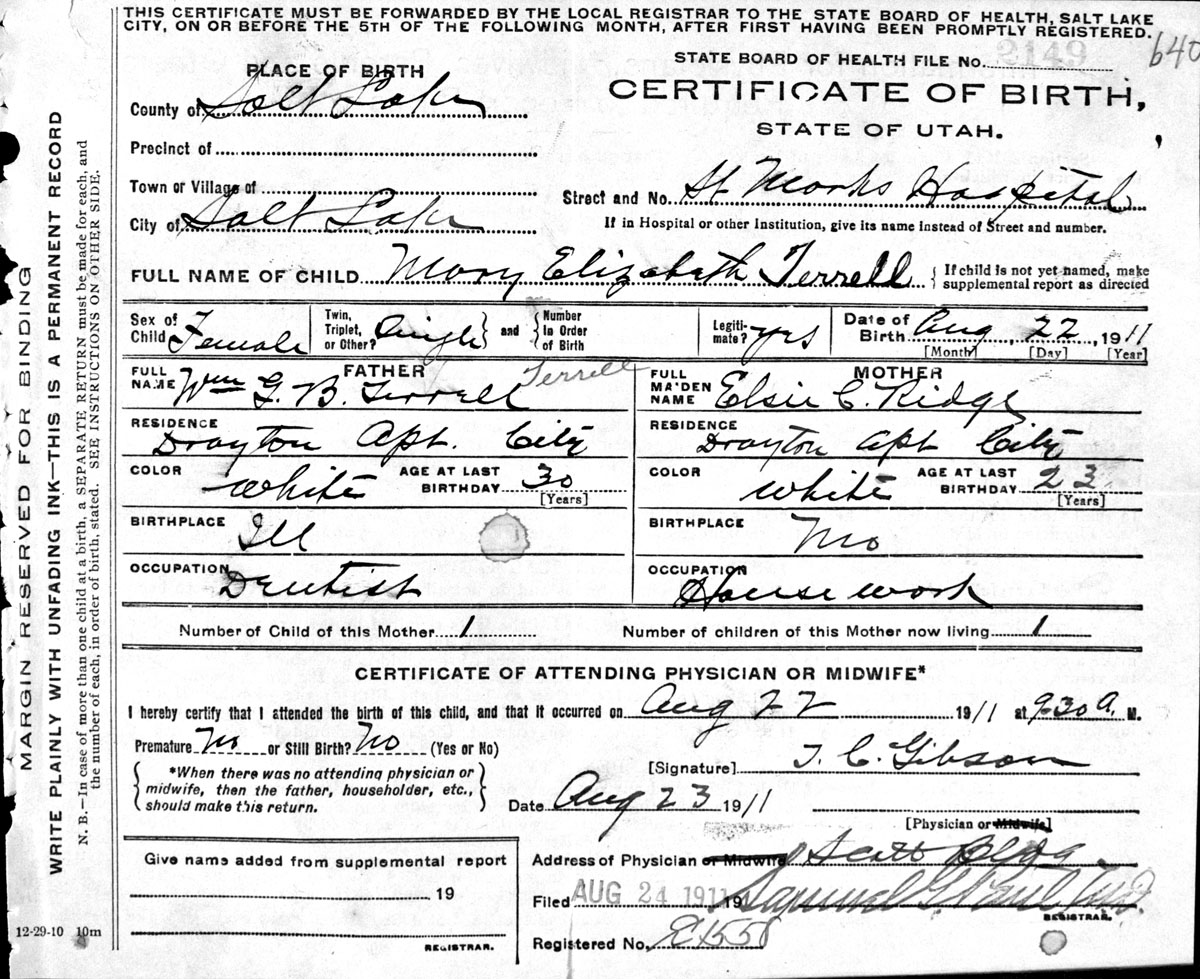 THIS CERTIFICATE MUST BE FORWARDED BY THE LOCAL REGISTRAR TO THE STATE BOARD OF HEALTH, SALT LAKE
CITY, ON OR BEFORE THE 5TH OF THE FOLLOWING MONTH, AFTER FIRST HAVING BEEN PROMPTLY REGISTERED.
640
STATE BOARD OF HEALTH FILE No. 2149
CERTIFICATE OF BIRTH,
STATE OF UTAH.
PLACE OF BIRTH
County of Salt Lake
Precinct of
Town or Village of
City of Salt Lake
Street and No. St Marks Hospital
If in Hospital or other Institution, give its name instead of Street and number.
FULL NAME OF CHILD Mary Elizabeth Terrell { If child is not yet named, make supplemental report as directed
Sex of Child Female Twin, Triplet, or Other? Single } and { Number in Order of Birth Legiti-mate? yes Date of Birth Aug, 22, 1911
[Month] [Day] [Year]
FATHER
FULL NAME Wm G. B. Terrell Terrell
RESIDENCE Drayton Apt. City
COLOR White AGE AT LAST BIRTHDAY 30 [Years]
BIRTHPLACE Ill
OCCUPATION Dentist
MOTHER
FULL MAIDEN NAME Elsie C. Ridge
RESIDENCE Drayton Apt City
COLOR White AGE AT LAST BIRTHDAY 23 [Years]
BIRTHPLACE Mo
OCCUPATION Housework
Number of Child of this Mother 1 Number of children of this Mother now living 1
CERTIFICATE OF ATTENDING PHYSICIAN OR MIDWIFE*
I hereby certify that I attended the birth of this child, and that it occurred on Aug 22 1911 at 9-30 a. M.
Premature No or Still Birth? No (Yes or No)
{ *When there was no attending physician or
midwife, then the father, householder, etc.,
should make this return. }
[Signature] T. C. Gibson
Date Aug 23 1911
[Physician or Midwife]
Give name added from supplemental report
19
REGISTRAR.
Address of Physician or Midwife Scott Bldg
Filed AUG 24 1911 19 Samuel G. Paul M.D.
REGISTRAR.
Registered No.
12-29-10 10m
MARGIN RESERVED FOR BINDING
WRITE PLAINLY WITH UNFADING INK—THIS IS A PERMANENT RECORD
N. B.—In case of more than one child at a birth, a SEPARATE RETURN must be made for each, and
the number of each, in order of birth, stated. SEE INSTRUCTIONS ON OTHER SIDE.